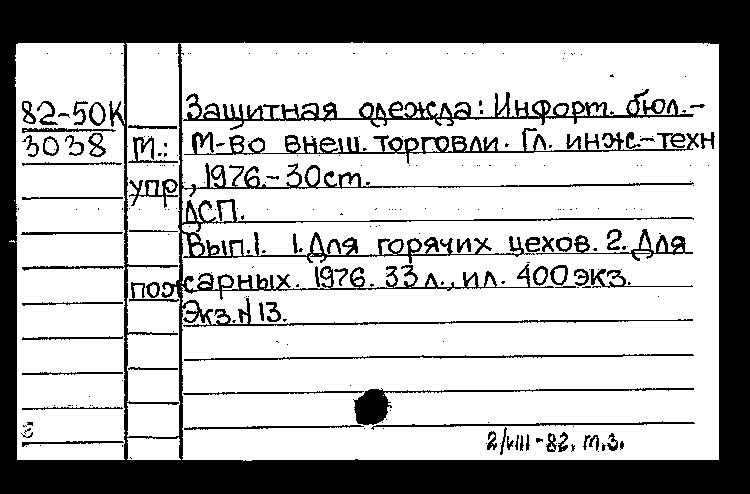 82-50К Защитная одежда: Информ. бюл.-
3038 М.: М-во внеш. торговли. Гл. инж.-техн
упр., 1976.-30ст.
ДСП.
Вып.1. 1.Для горячих цехов. 2. Для
пожарных. 1976. 33 л., ил. 400 экз.
Экз.N13.
2/VIII-82. т.з.